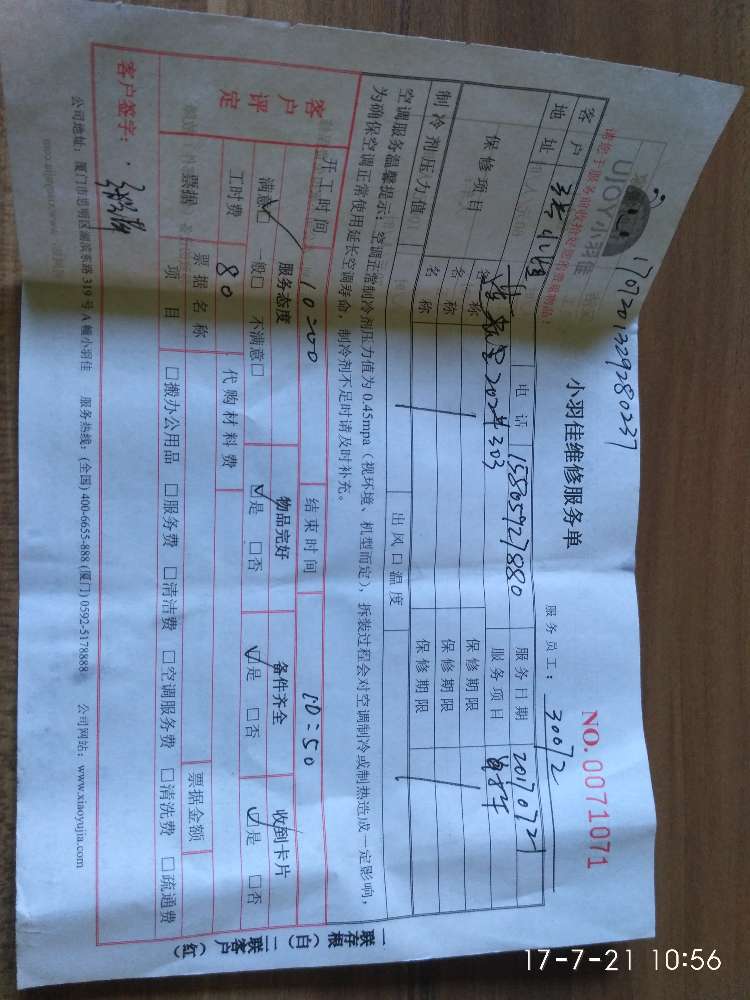 170720132928023​7
UJOY小羽佳
小羽佳维修服务单
NO.0071071
服务员工：30072
客户 电话 15805927880 服务日期 20170721
地址 202 303 服务项目
保修项目 名称 保修期限
名称 保修期限
名称 保修期限
制冷剂压力值 出风口温度
空调服务温馨提示：空调正常制冷剂压力值为0.45mpa（视环境、机型而定），拆装过程会对空调制冷或制热造成一定影响，
为确保空调正常使用延长空调寿命，制冷剂不足时请及时补充。
客户评定
开工时间 10:00 结束时间 10:50
服务态度 物品完好 备件齐全 收到卡片
满意☑ 一般□ 不满意□ ☑是 □否 ☑是 □否 ☑是 □否
工时费 80 代购材料费
票据 票据名称 票据金额
项目 □搬办公用品 □服务费 □清洁费 □空调服务费 □清洗费 □疏通费
客户签字：
公司地址：厦门市思明区湖滨东路319号A幢小羽佳 服务热线：(全国) 400-6655-888 (厦门) 0592-5178888 公司网站：www.xiaoyujia.com
一联存根（白） 二联客户（红）
17-7-21 10:56